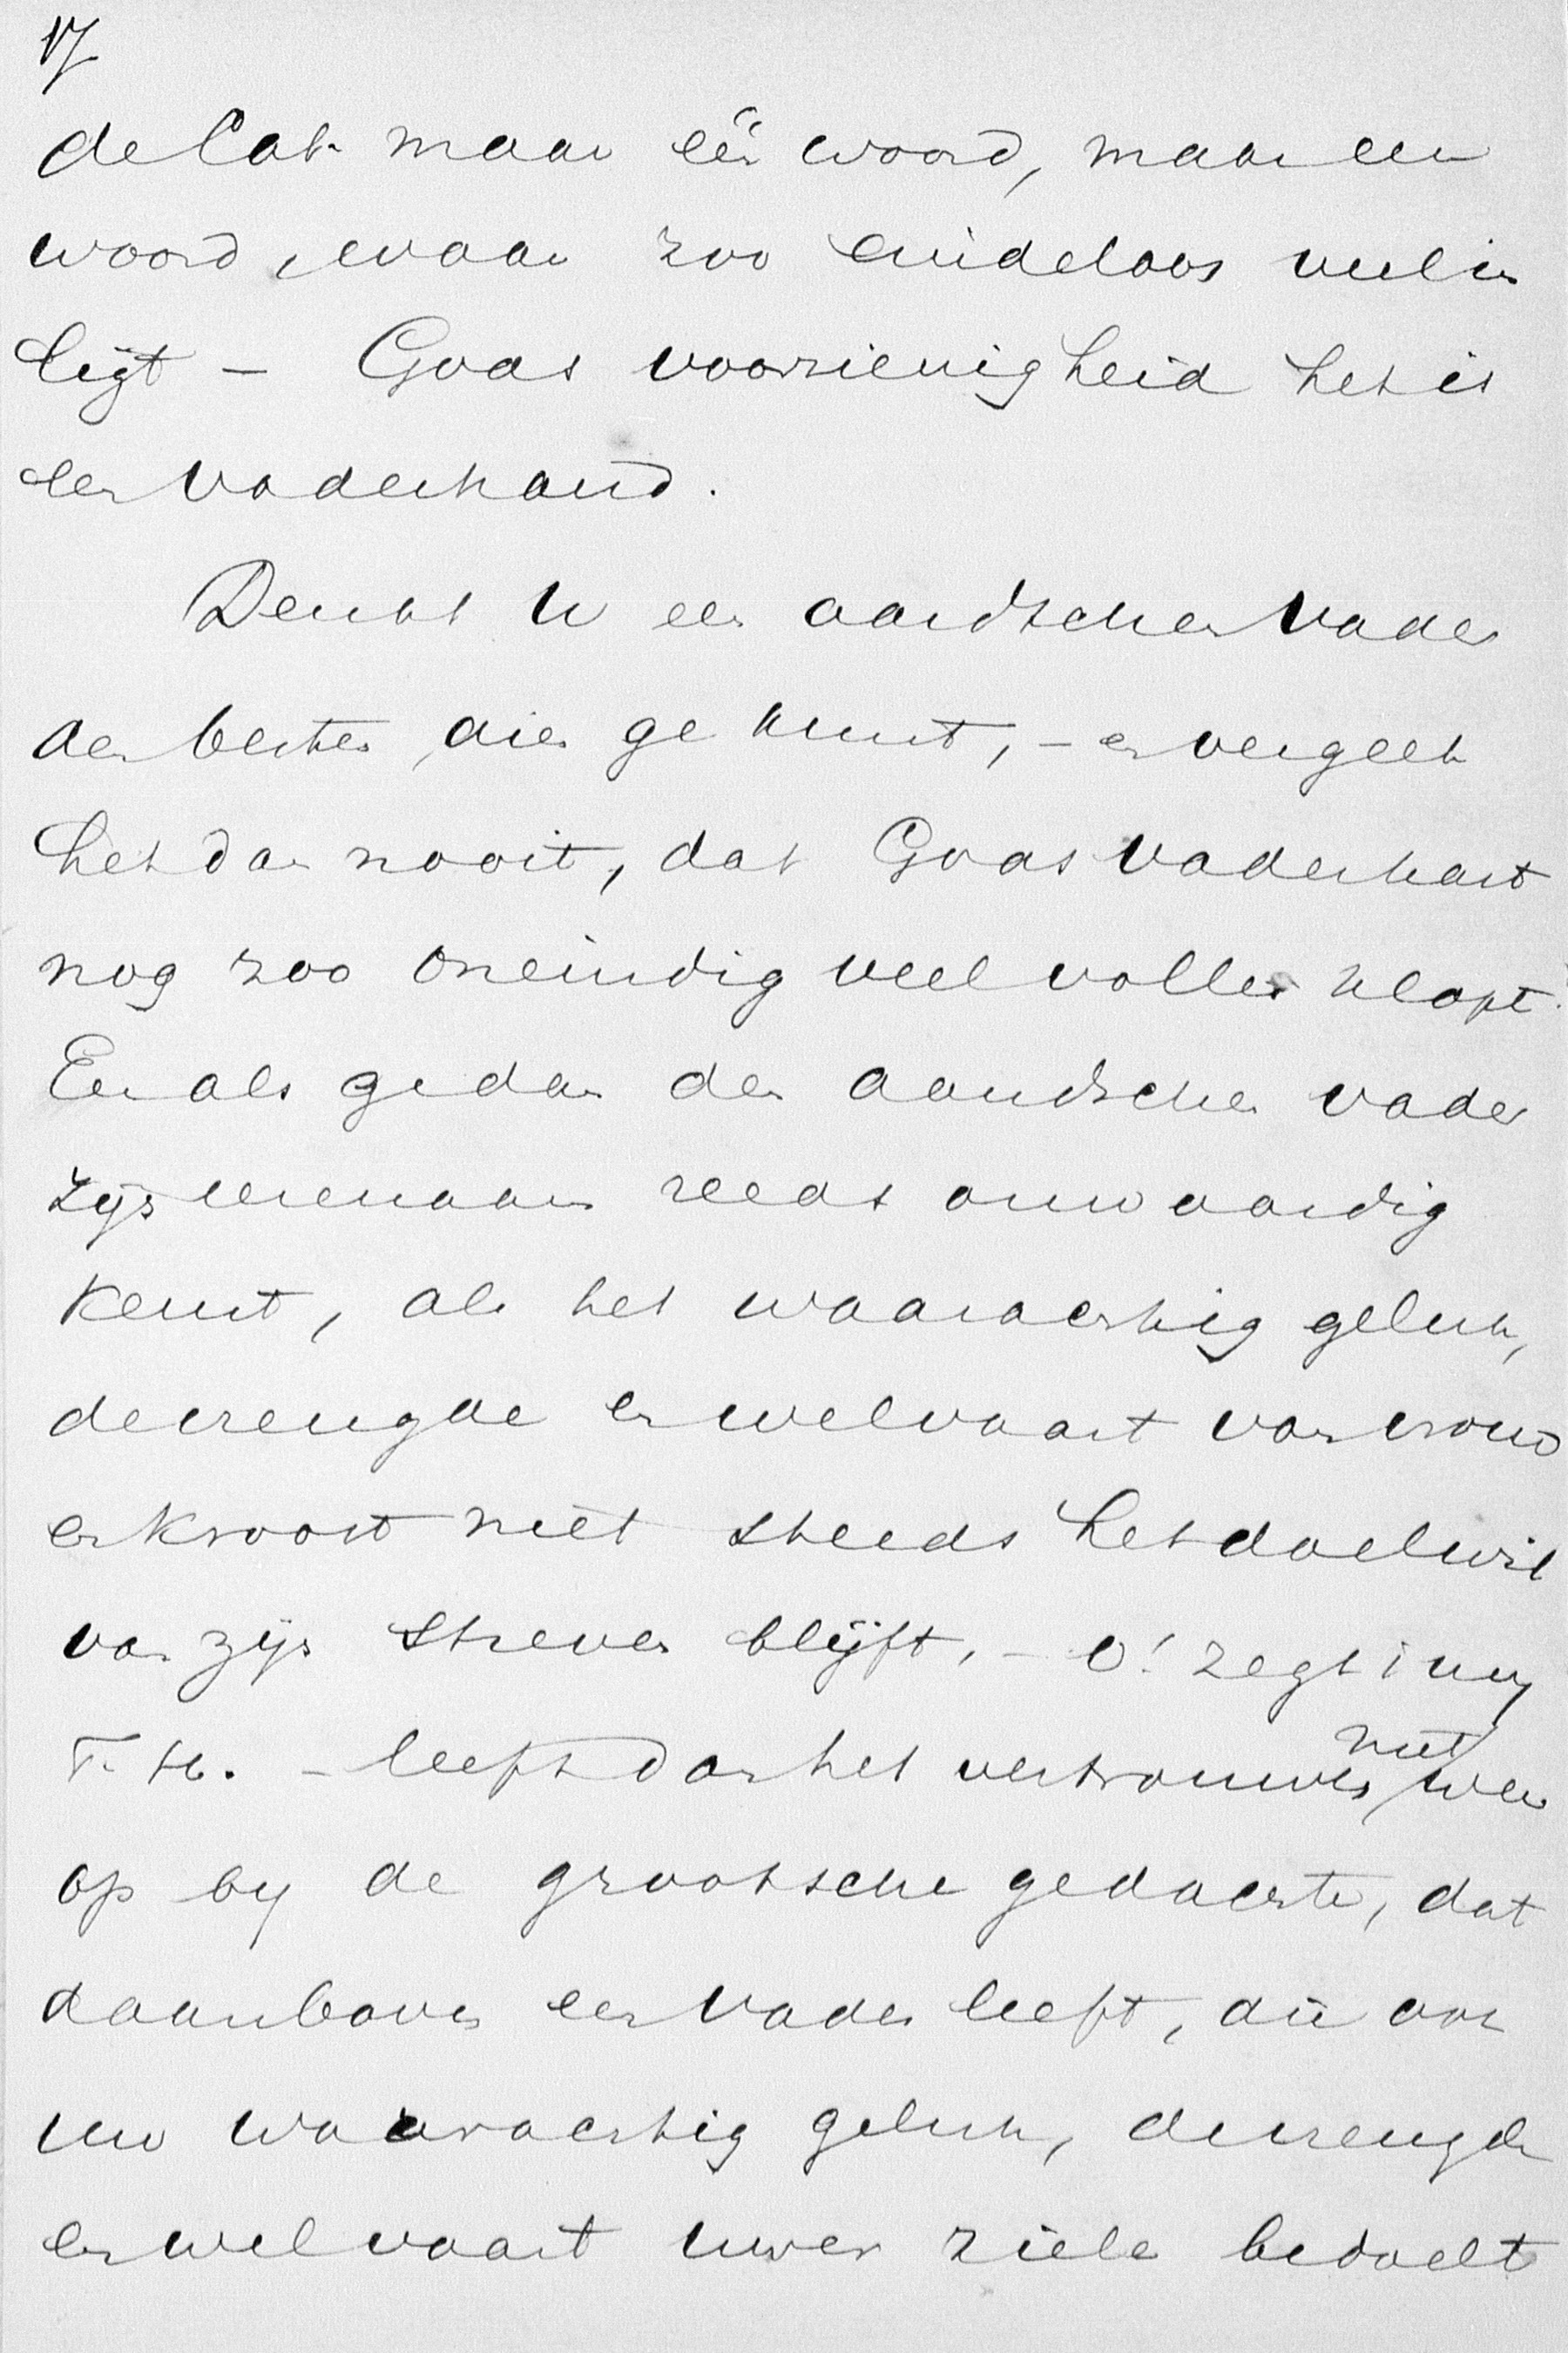 17
de Cat. maar één woord, maar een
woord, waar zoo eindeloos veel in
ligt – Gods voorzienigheid het is
een Vaderhand.
Denkt U een aardschen Vader
den besten, dien ge kunt, – en vergeet
het dan nooit, dat Gods Vaderhart
nog zoo oneindig veel voller klopt.
En als ge dan den aardschen vader
zijn eerenaam reeds onwaardig
keurt, als het waarachtig geluk,
de vreugde en welvaart van vrouw
en kroost niet steeds het doelwit
van zijn streven blijft, – o! zegt i my
T. H. – leeft dan het vertrouwen niet weer
op by de grootsche gedachte, dat
daarboven een Vader leeft, die ook
uw waarachtig geluk, de vreugde
en welvaart uwer ziele bedoelt